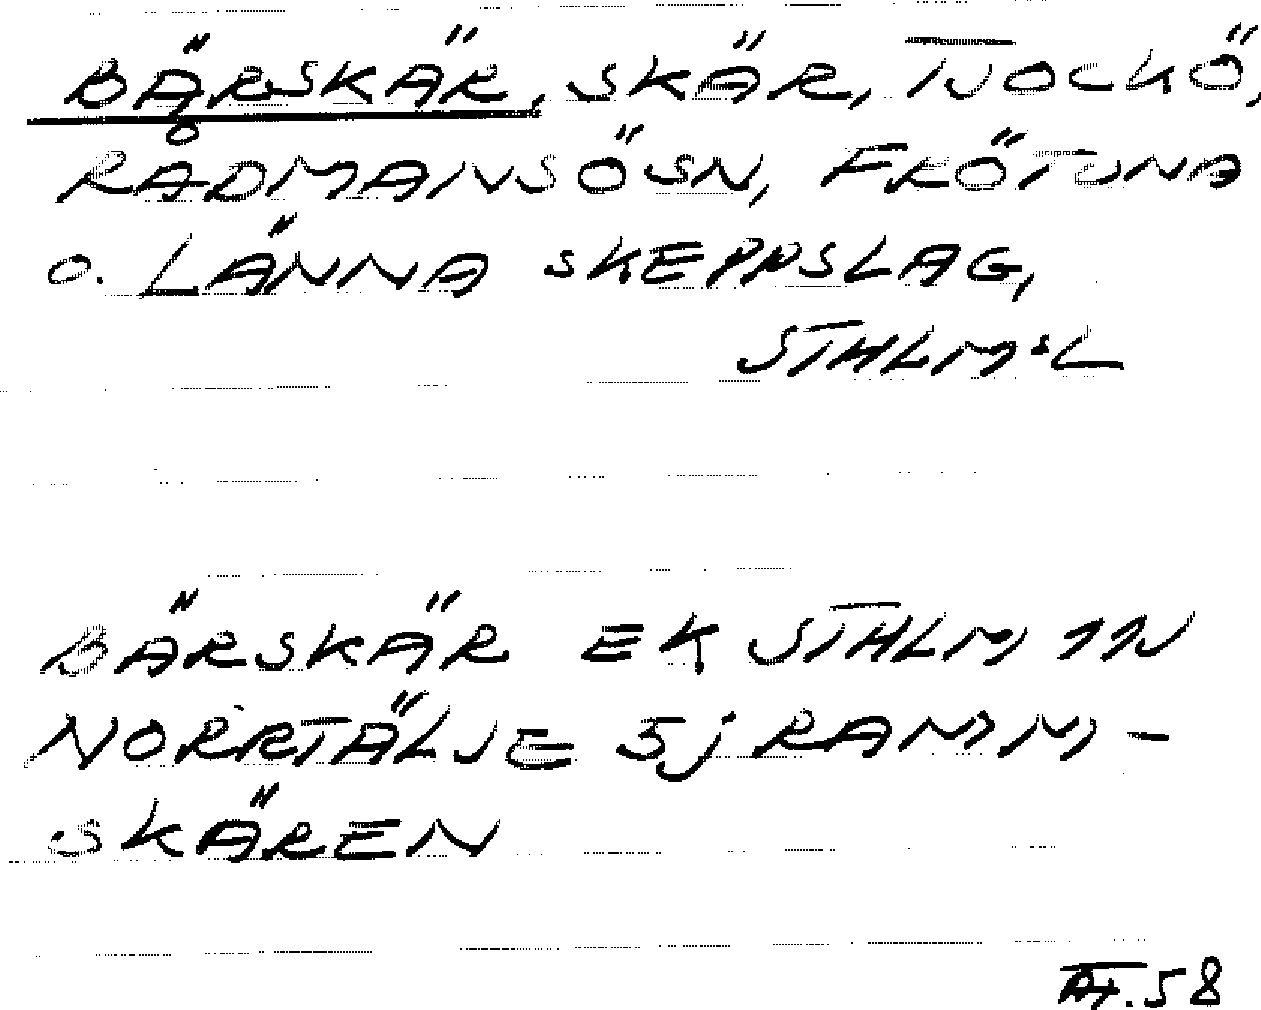 BÄRSKÄR, SKÄR, TJOCKÖ,
RÅDMANSÖ SN, FRÖTUNA
O. LÄNNA SKEPPSLAG,
STHLMSL
BÄRSKÄR EK STHLM 11N
NORRTÄLJE 5j RAMM-
SKÄREN
58